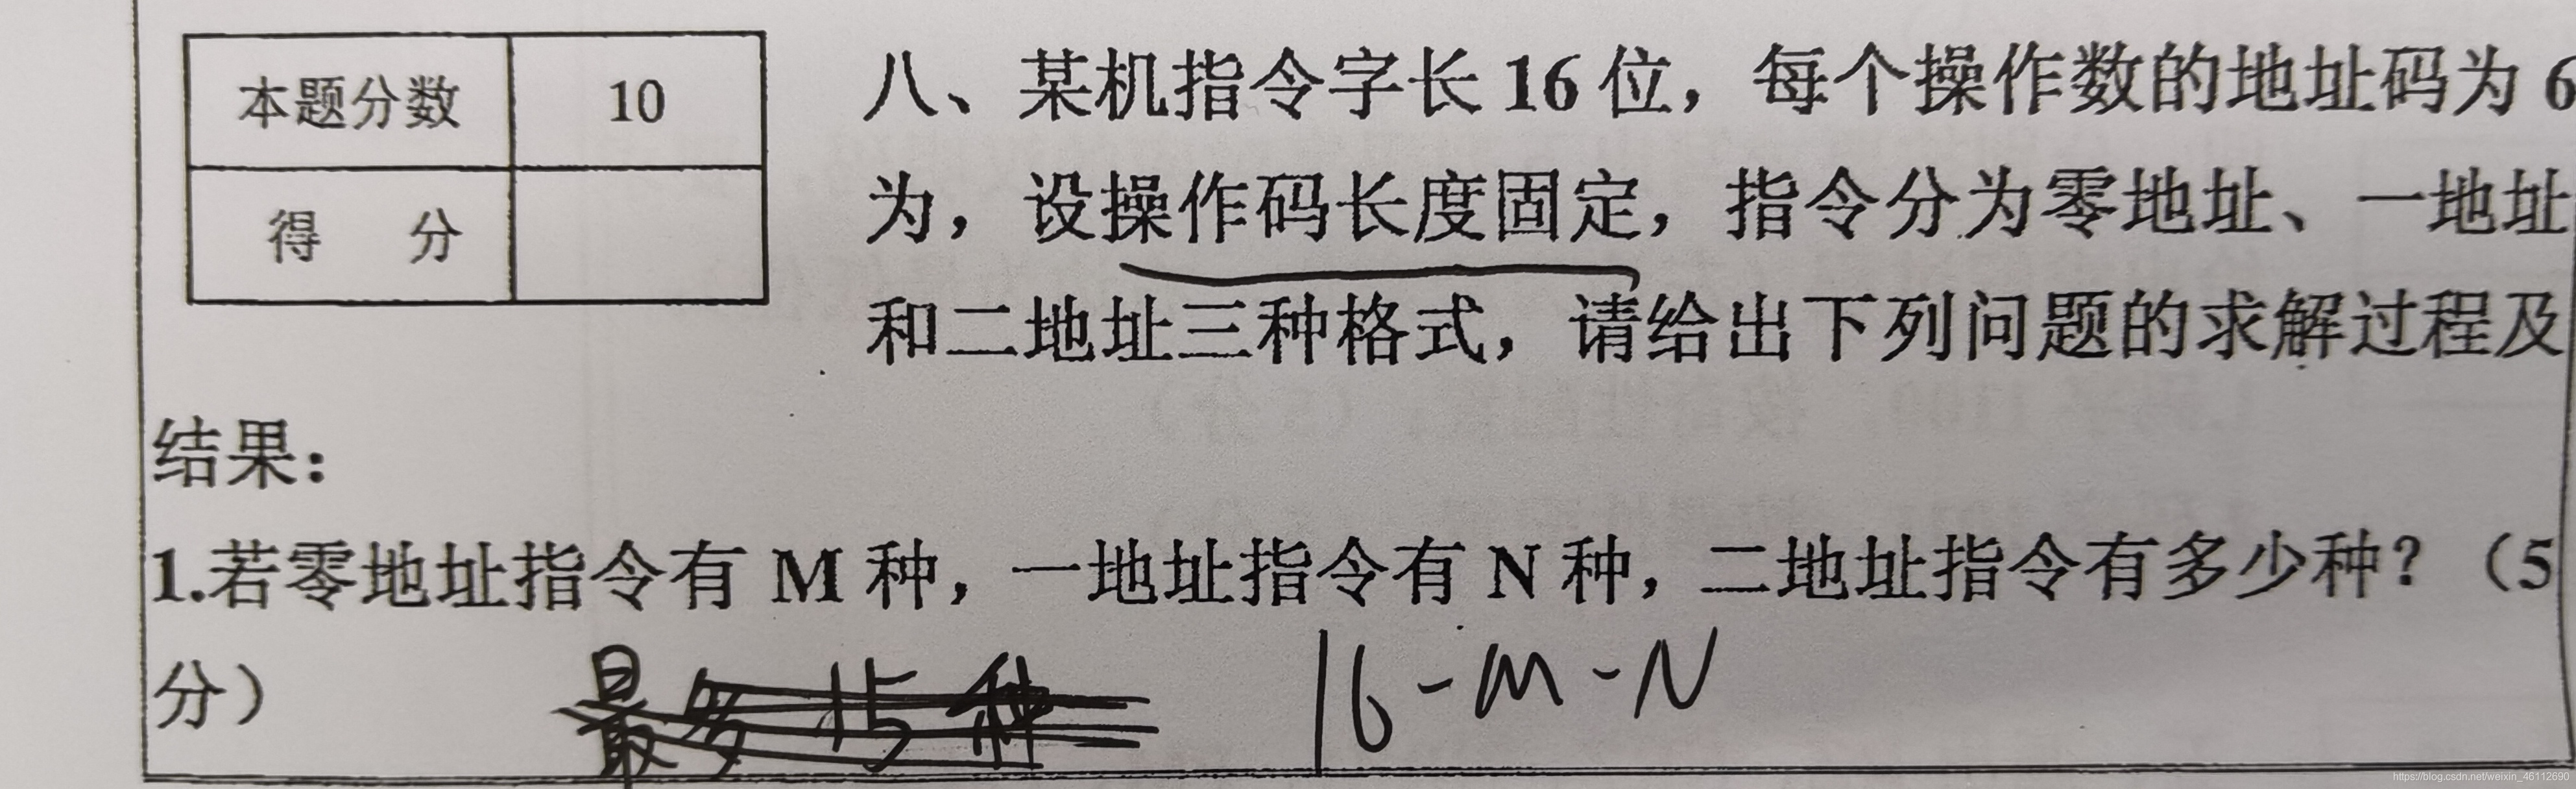 本题分数 10
八、某机指令字长 16 位，每个操作数的地址码为 6
为，设操作码长度固定，指令分为零地址、一地址
得 分
和二地址三种格式，请给出下列问题的求解过程及
结果：
1.若零地址指令有 M 种，一地址指令有 N 种，二地址指令有多少种？（5
分）
最多 15 种 16-M-N
https://blog.csdn.net/weixin_46112690